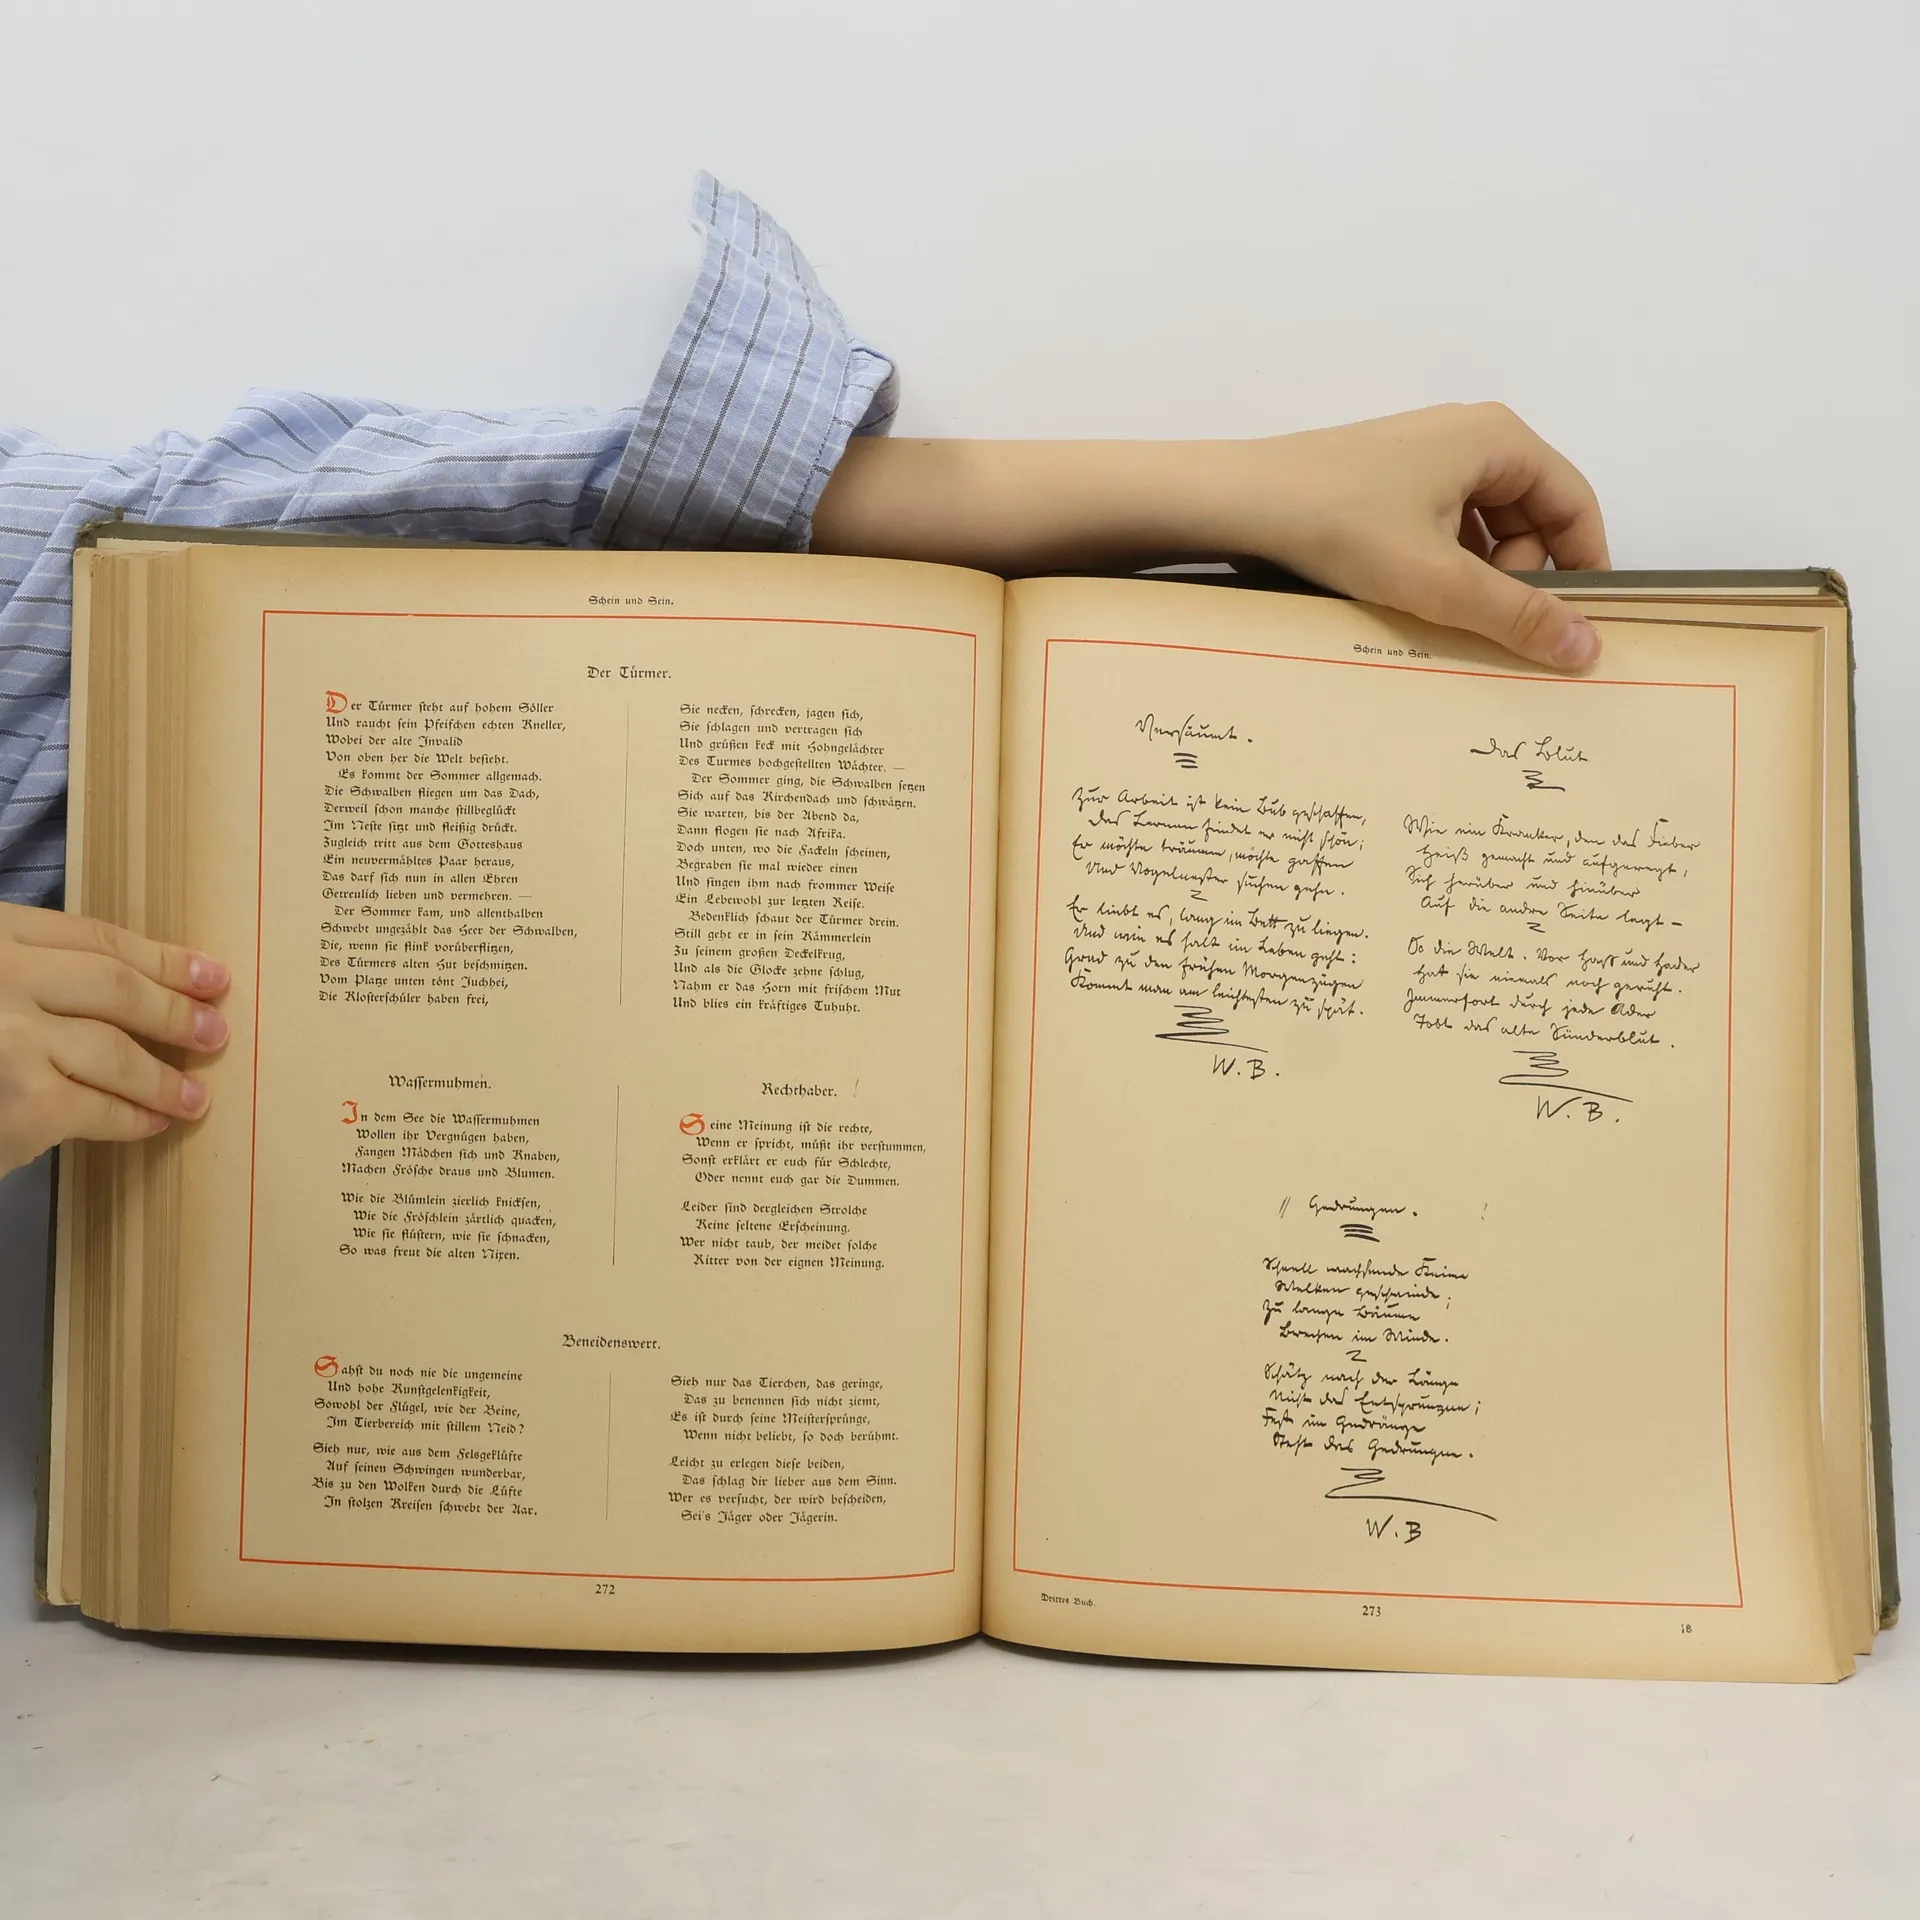 Schein und Sein.
Der Türmer.
Der Türmer steht auf hohem Söller
Und raucht sein Pfeifchen echten Kneller,
Wobei der alte Invalid
Von oben her die Welt besieht.
Es kommt der Sommer allgemach.
Die Schwalben fliegen um das Dach,
Derweil schon manche stillbeglückt
Im Neste sitzt und fleißig drückt.
Zugleich tritt aus dem Gotteshaus
Ein neuvermähltes Paar heraus,
Das darf sich nun in allen Ehren
Getreulich lieben und vermehren. —
Der Sommer kam, und allenthalben
Schwebt ungezählt das Heer der Schwalben,
Die, wenn sie flink vorüberflitzen,
Des Türmers alten Hut beschmitzen.
Vom Platze unten tönt Juchhei,
Die Klosterschüler haben frei,
Sie necken, schrecken, jagen sich,
Sie schlagen und vertragen sich
Und grüßen keck mit Hohngelächter
Des Turmes hochgestellten Wächter. —
Der Sommer ging, die Schwalben setzen
Sich auf das Kirchendach und schwätzen.
Sie warten, bis der Abend da,
Dann flogen sie nach Afrika.
Doch unten, wo die Fackeln scheinen,
Begraben sie mal wieder einen
Und singen ihm nach frommer Weise
Ein Lebewohl zur letzten Reise.
Bedenklich schaut der Türmer drein.
Still geht er in sein Kämmerlein
Zu seinem großen Deckelkrug,
Und als die Glocke zehne schlug,
Nahm er das Horn mit frischem Mut
Und blies ein kräftiges Tuhuht.
Wassermuhmen.
In dem See die Wassermuhmen
Wollen ihr Vergnügen haben,
Fangen Mädchen sich und Knaben,
Machen Frösche draus und Blumen.
Wie die Blümlein zierlich knicksen,
Wie die Fröschlein zärtlich quacken,
Wie sie flüstern, wie sie schnacken,
So was freut die alten Nixen.
Rechthaber.
Seine Meinung ist die rechte,
Wenn er spricht, müßt ihr verstummen,
Sonst erklärt er euch für Schlechte,
Oder nennt euch gar die Dummen.
Leider sind dergleichen Strolche
Keine seltene Erscheinung.
Wer nicht taub, der meidet solche
Ritter von der eignen Meinung.
Beneidenswert.
Sahst du noch nie die ungemeine
Und hohe Kunstgelenkigkeit,
Sowohl der Flügel, wie der Beine,
Im Tierbereich mit stillem Neid?
Sieh nur, wie aus dem Felsgeklüfte
Auf seinen Schwingen wunderbar,
Bis zu den Wolken durch die Lüfte
In stolzen Kreisen schwebt der Aar.
Sieh nur das Tierchen, das geringe,
Das zu benennen sich nicht ziemt,
Es ist durch seine Meistersprünge,
Wenn nicht beliebt, so doch berühmt.
Leicht zu erlegen diese beiden,
Das schlag dir lieber aus dem Sinn.
Wer es versucht, der wird bescheiden,
Sei's Jäger oder Jägerin.
272
Schein und Sein.
Versäumt.
Zur Arbeit ist kein Bub geschaffen,
Das Lernen findet er nicht schön;
Er möchte träumen, möchte gaffen
Und Vogelnester suchen gehn.
Er liebt es, lang im Bett zu liegen.
Und wie es halt im Leben geht:
Grad zu den frühen Morgenzügen
Kommt man am leichtesten zu spät.
W. B.
Das Blut
Wie ein Kranker, den das Fieber
Heiß gemacht und aufgeregt,
Sich herüber und hinüber
Auf die andre Seite legt –
So die Welt. Vor Haß und Hader
Hat sie niemals noch geruht.
Immerfort durch jede Ader
Tobt das alte Sünderblut.
W. B.
Gedrungen.
Schnell wachsende Keime
Welken geschwinde;
Zu lange Bäume
Brechen im Winde.
Schätz nach der Länge
Nicht das Entsprungne;
Fest im Gedränge
Steht das Gedrungne.
W. B
Drittes Buch.
273
18